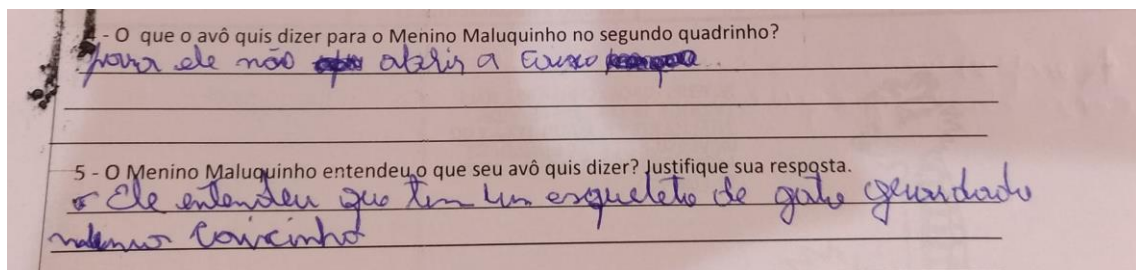 - O que o avô quis dizer para o Menino Maluquinho no segundo quadrinho?
para ele não abrir a
5 - O Menino Maluquinho entendeu o que seu avô quis dizer? Justifique sua resposta.
Ele entendeu que tem um esqueleto de gato guardado